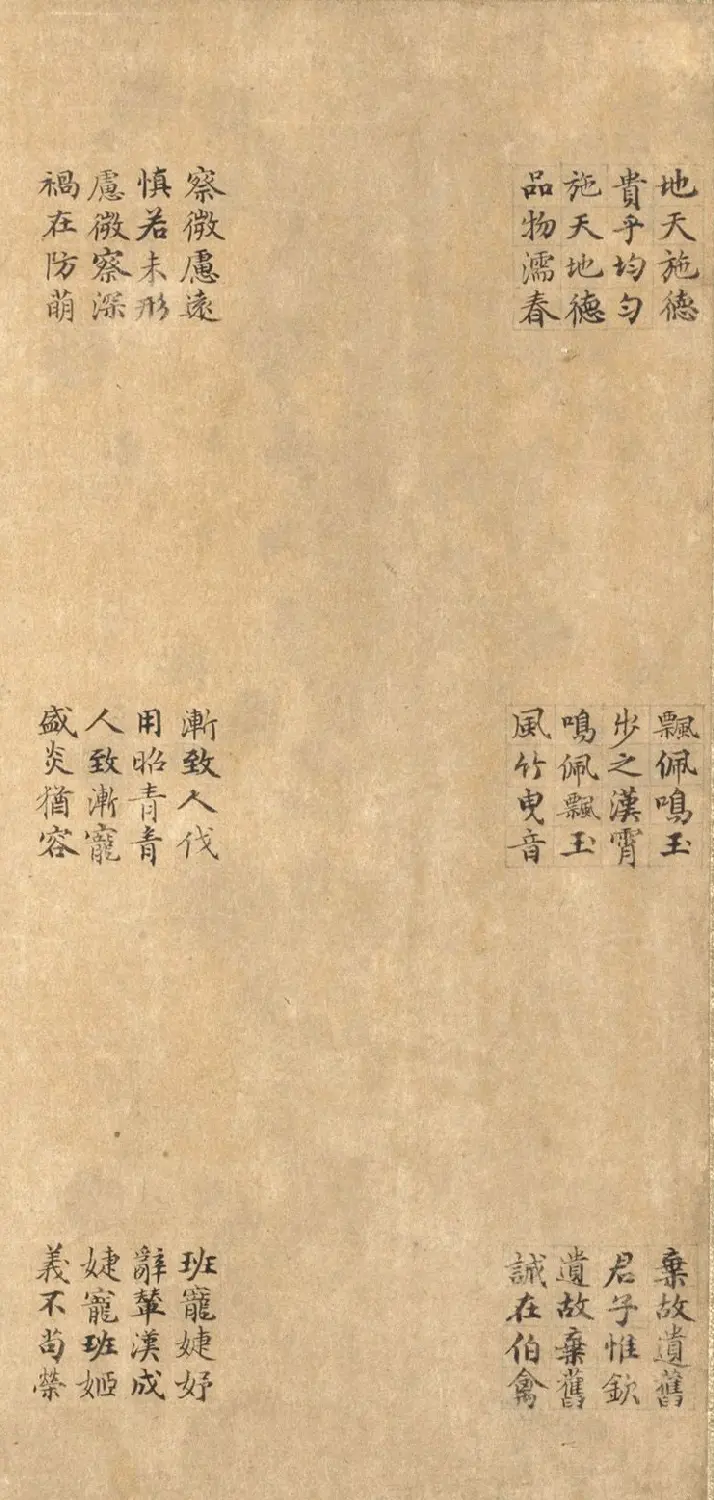 地天施德
貴乎均勻
施天地德
品物濡春
飄佩鳴玉
步之漢霄
鳴佩飄玉
風竹曳音
棄故遺舊
君子惟欽
遺故棄舊
誠在伯禽
察微慮遠
慎若未形
慮微察深
禍在防萌
漸致人伐
用昭青青
人致漸寵
盛炎猶容
班寵婕妤
辭輦漢成
婕寵班姬
義不苟榮